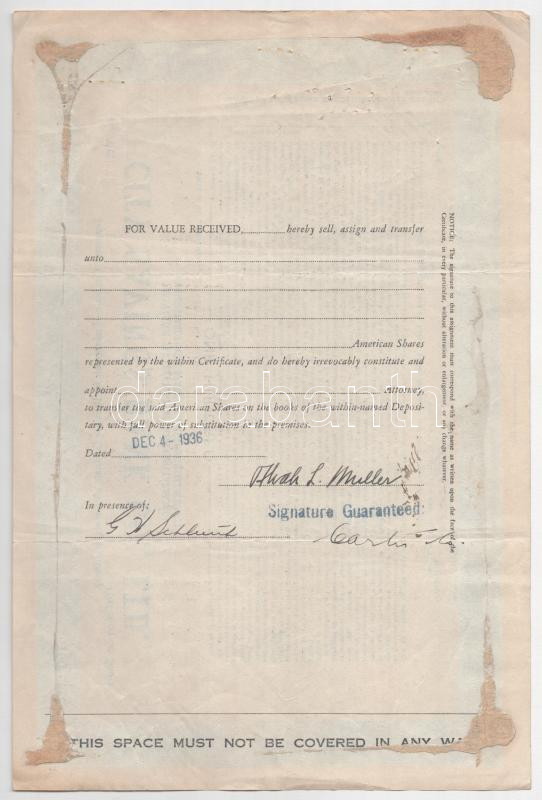 FOR VALUE RECEIVED, hereby sell, assign and transfer
unto
American Shares
represented by the within Certificate, and do hereby irrevocably constitute and
appoint Attorney,
to transfer the said American Shares on the books of the within-named Deposi-
tary, with full power of substitution in the premises.
DEC 4 - 1936
Dated
L. Muller
In presence of:
Signature Guaranteed:
G H
NOTICE: The signature to this assignment must correspond with the name as written upon the face of the
Certificate, in every particular, without alteration or enlargement, or any change whatever.
darabanth
THIS SPACE MUST NOT BE COVERED IN ANY WA